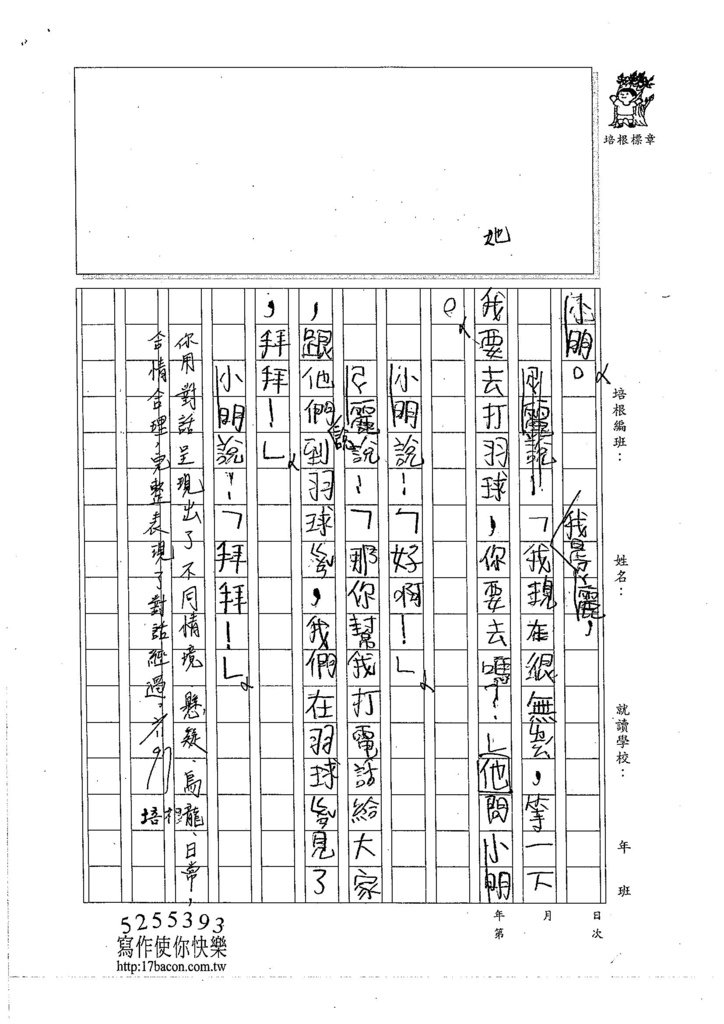 培根標章
她
培根編班：
姓名：
就讀學校：
年 班
年 月 日
第 次
小明。
我是小麗，
小麗說：「我現在很無聊，等一下
我要去打羽球，你要去嗎？」他問小明
。
小明說：「好啊！」
小麗說：「那你幫我打電話給大家
，跟他們說到羽球場，我們在羽球場見了
，拜拜！」
小明說：「拜拜！」
你用對話呈現出了不同情境，懸疑、烏龍、日常，
合情合理，完整表現了對話經過。
培根
5255393
寫作使你快樂
http:17bacon.com.tw